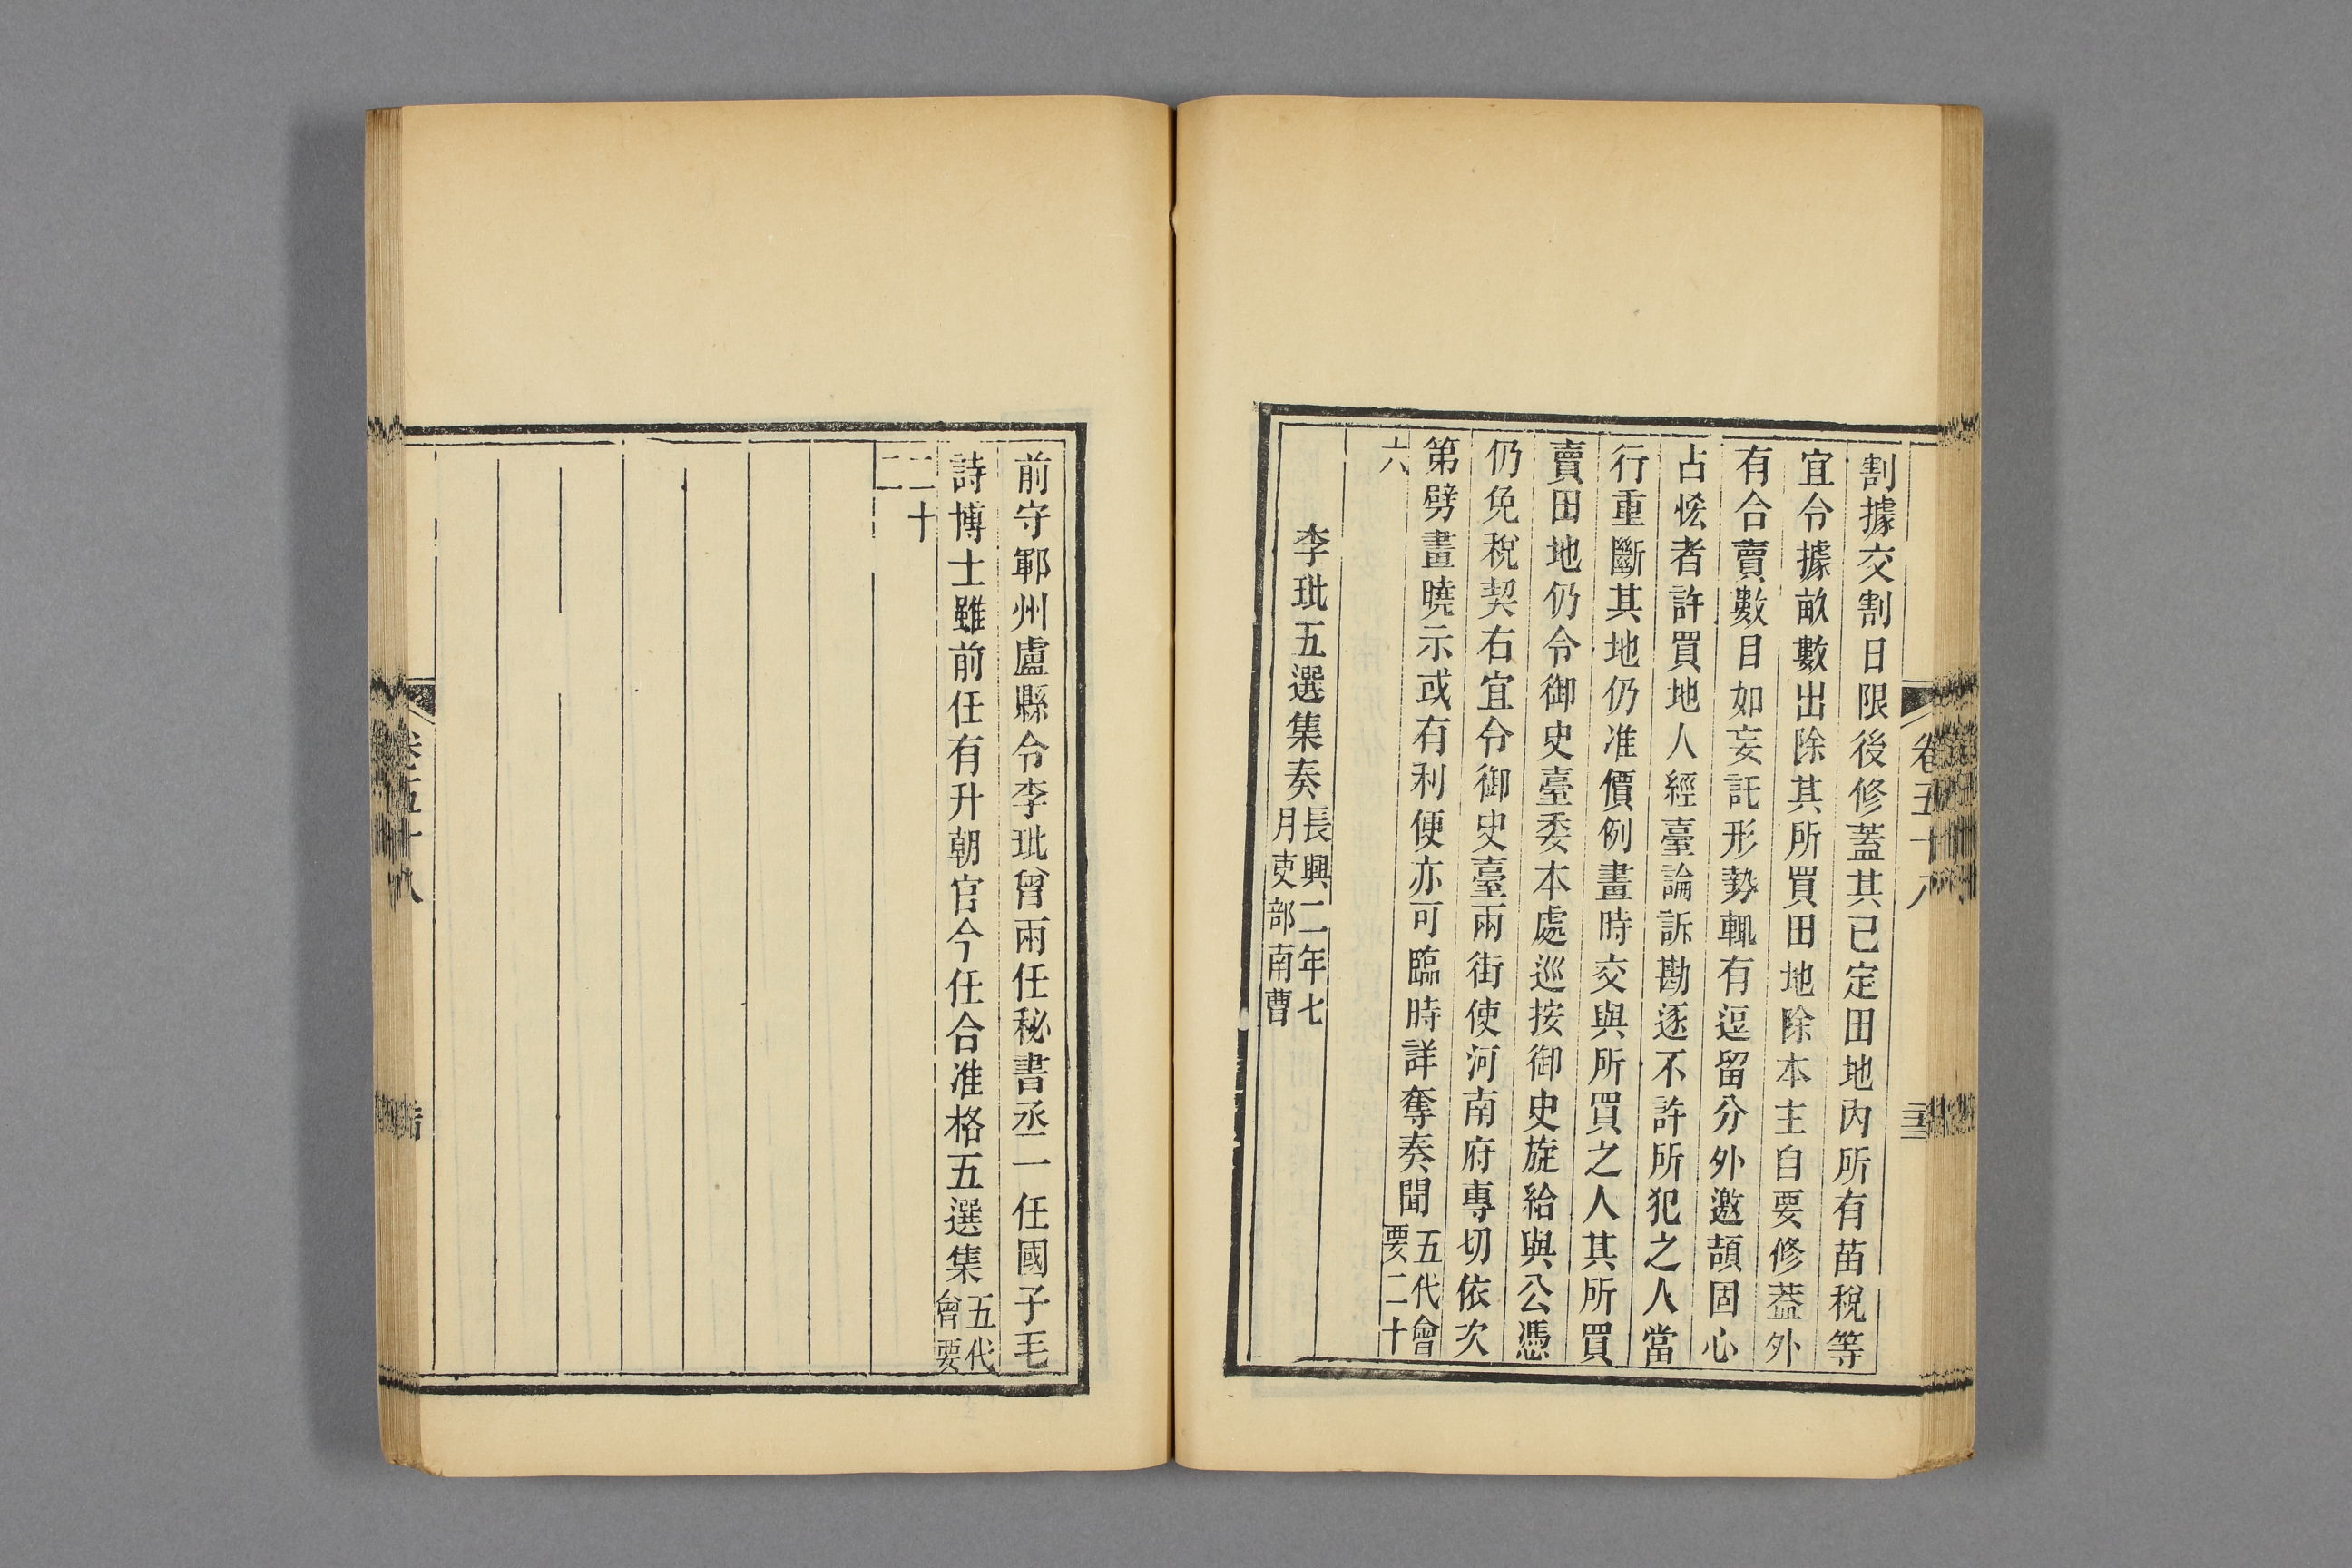 割據交割日限後修蓋其已定田地內所有苗稅等
宜令據畝數出除其所買田地除本主自要修蓋外
有合賣數目如妄託形勢輒有逗留分外邀頡固心
占恡者許買地人經臺論訴勘逐不許所犯之人當
行重斷其地仍准價例畫時交與所買之人其所買
賣田地仍令御史臺委本處巡按御史旋給與公憑
仍免稅契右宜令御史臺兩街使河南府專切依次
第劈畫曉示或有利便亦可臨時詳奪奏聞五代會
要二十
六
李玭五選集奏長興二年七
月吏部南曹
卷五十八
前守鄆州盧縣令李玭曾兩任秘書丞一任國子毛
詩博士雖前任有升朝官今任合准格五選集五代
會要
二十
二
卷五十八